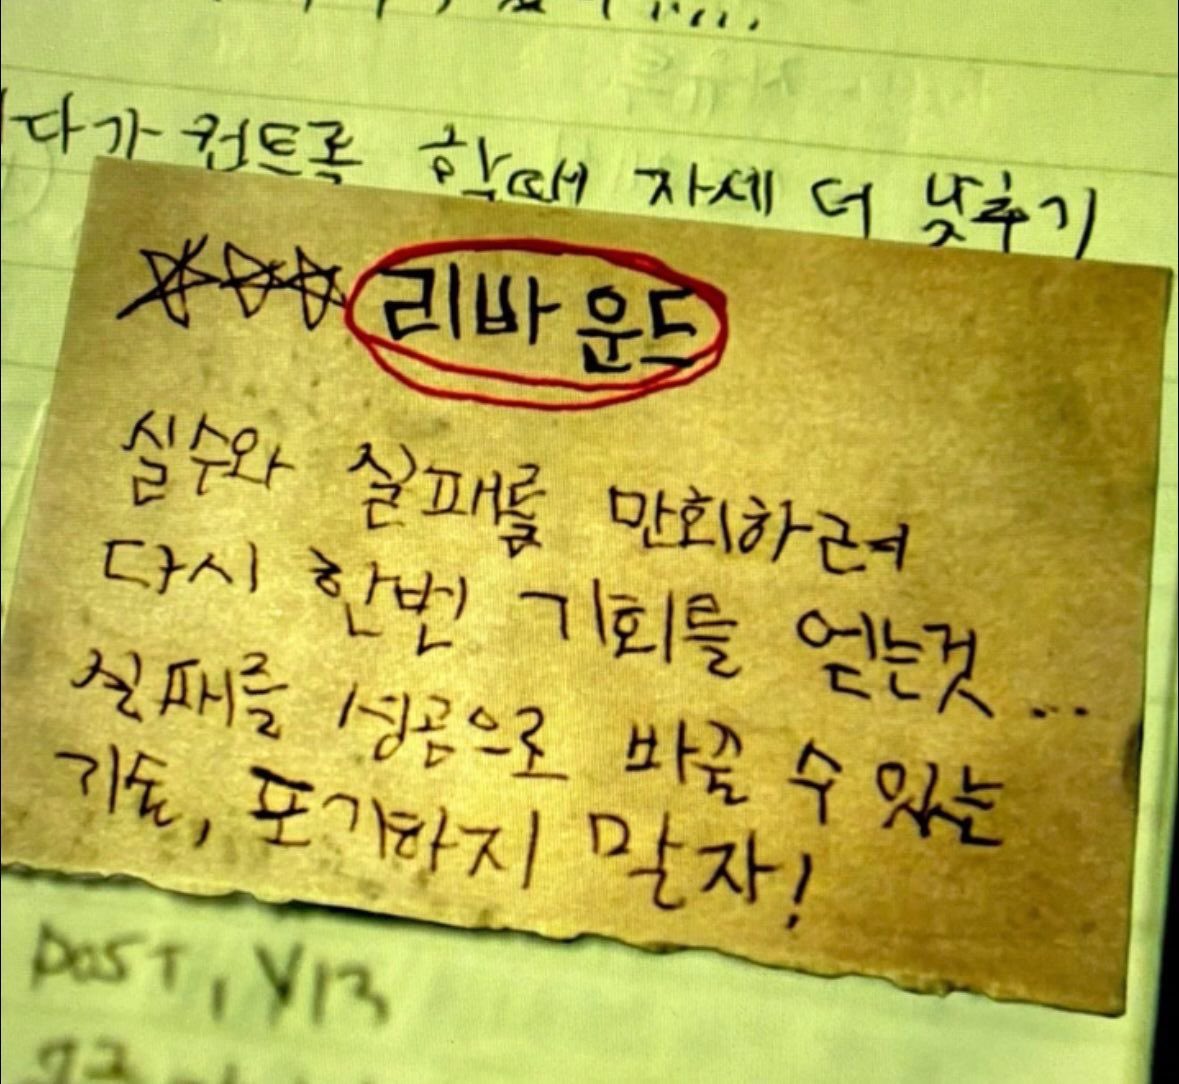 다가 컨트롤 할때 자세 더 낮추기
☆☆☆ 리바운드
실수와 실패를 만회하려
다시 한번 기회를 얻는것...
실패를 성공으로 바꿀 수 있는
기술, 포기하지 말자!
POST,